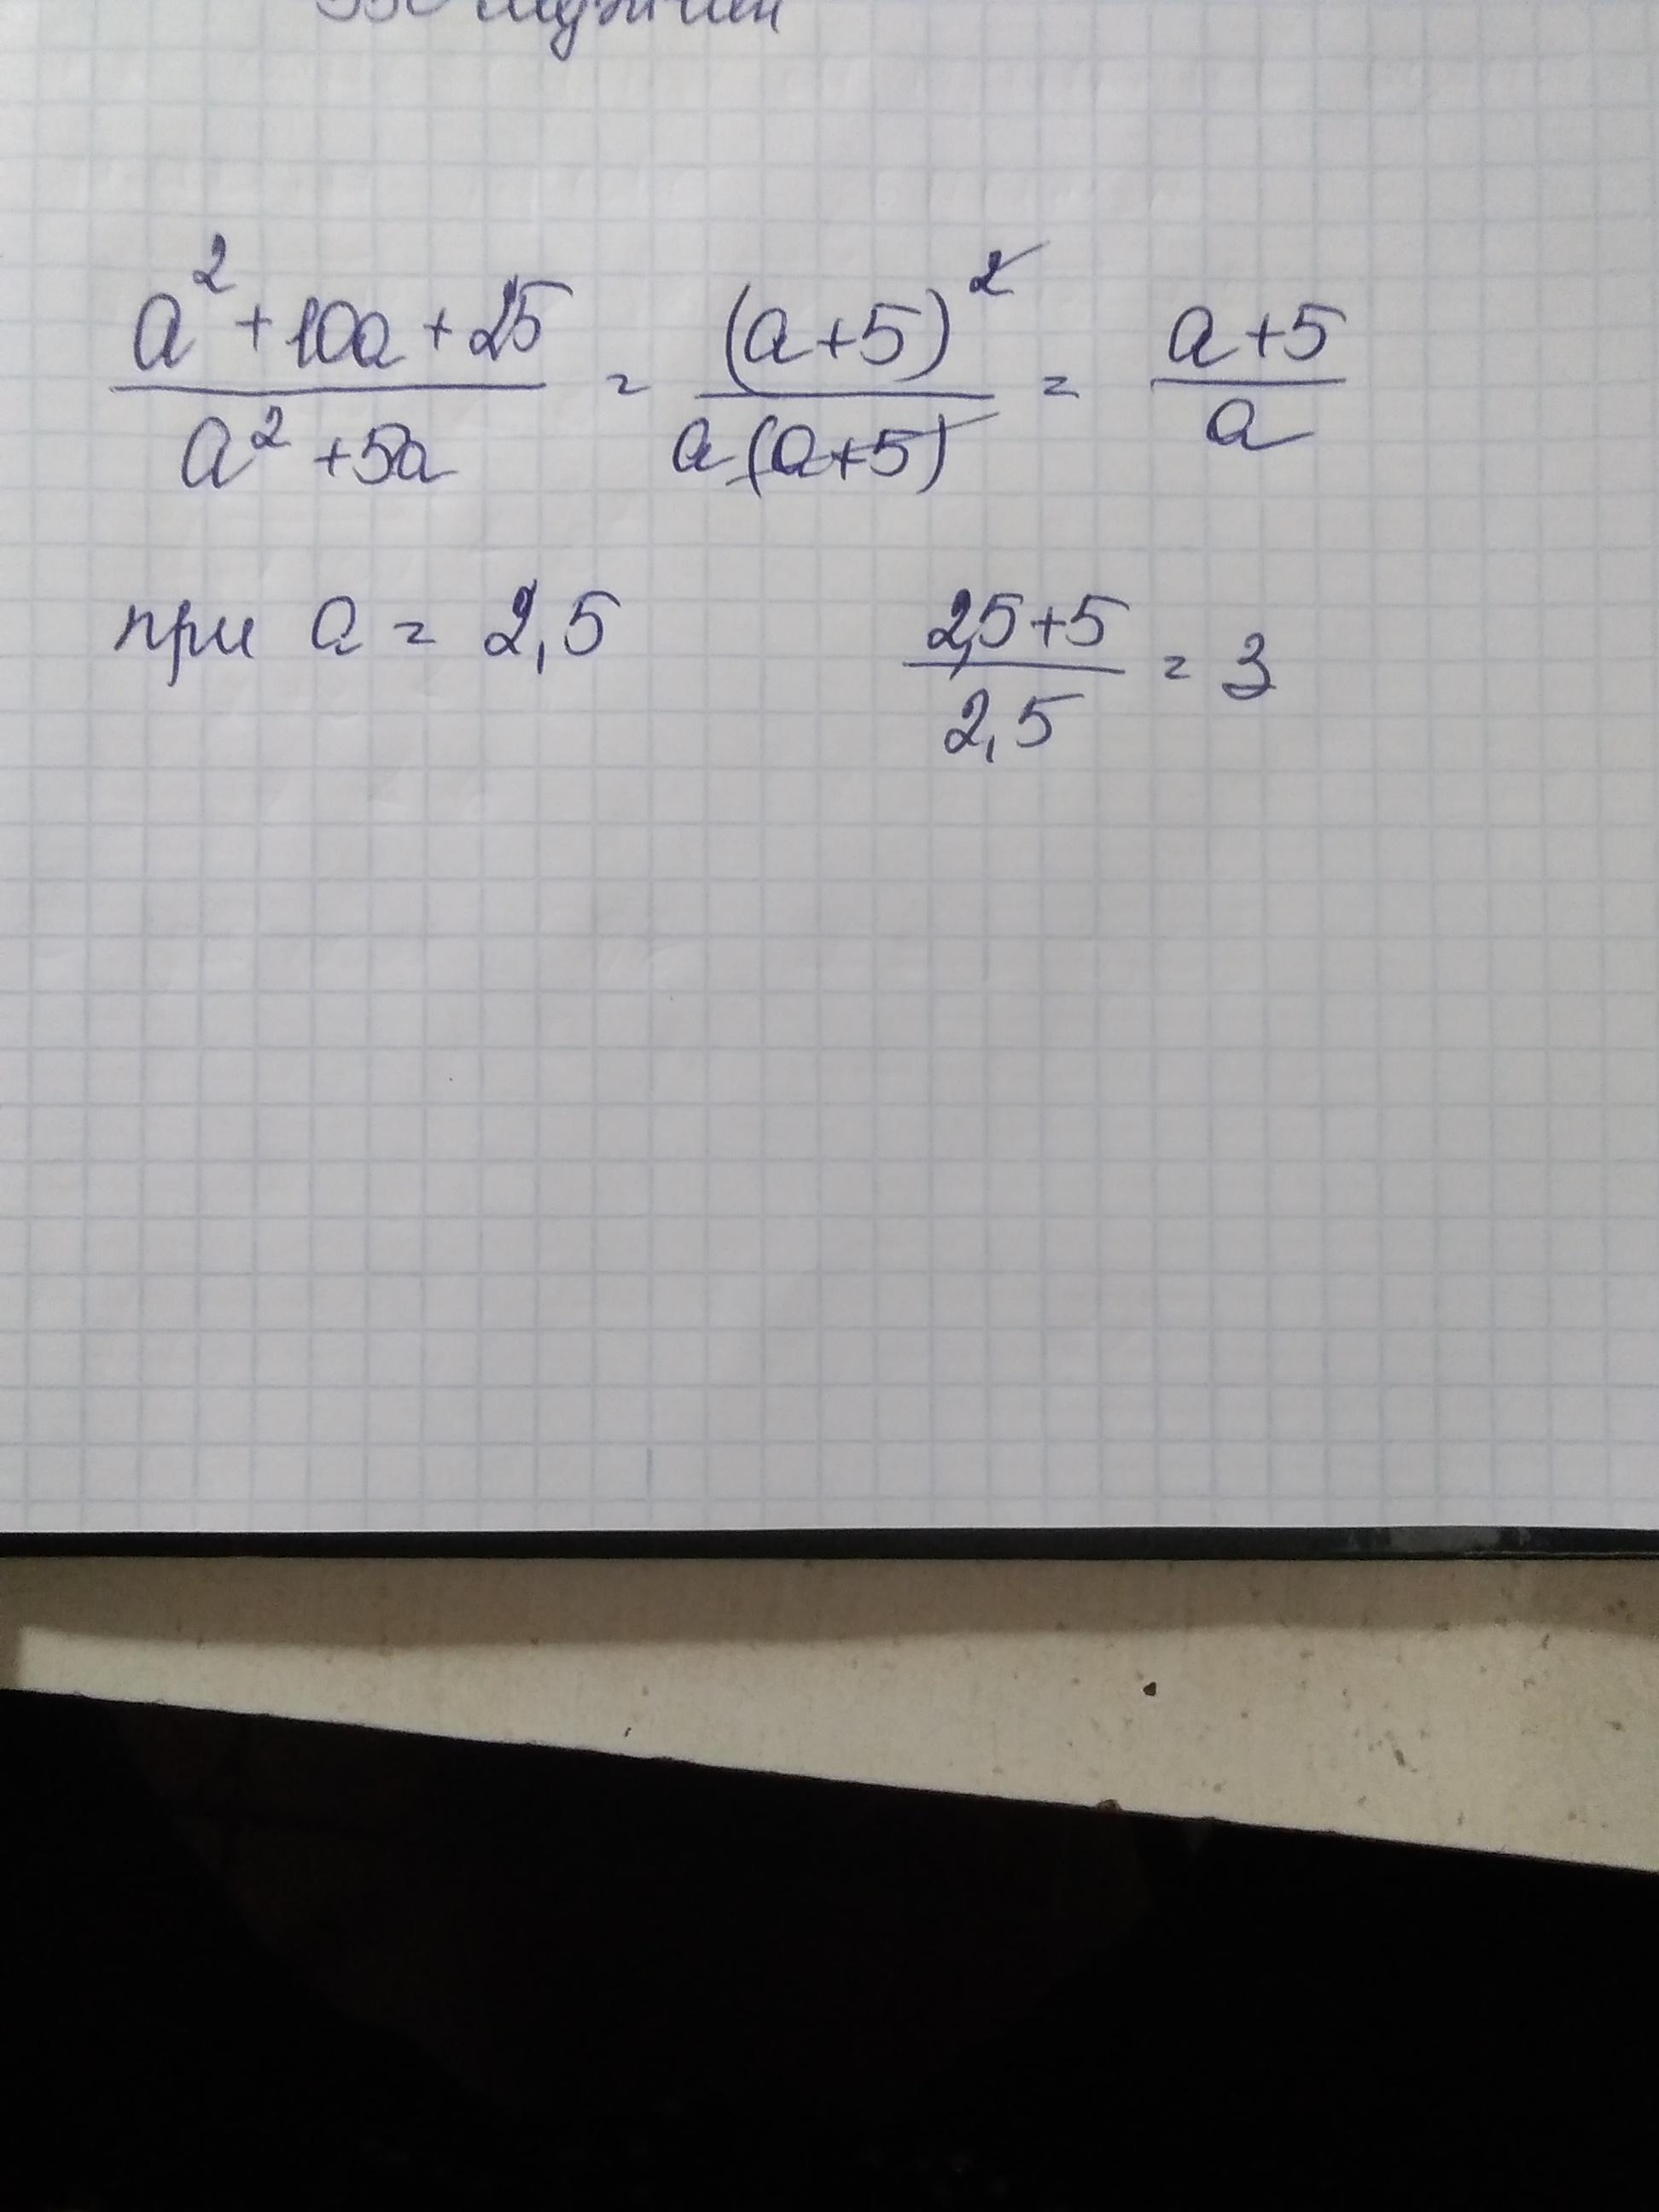 a² + 10a + 25 / a² + 5a = (a+5)² / a(a+5) = a+5 / a
при a = 2,5 2,5+5 / 2,5 = 3